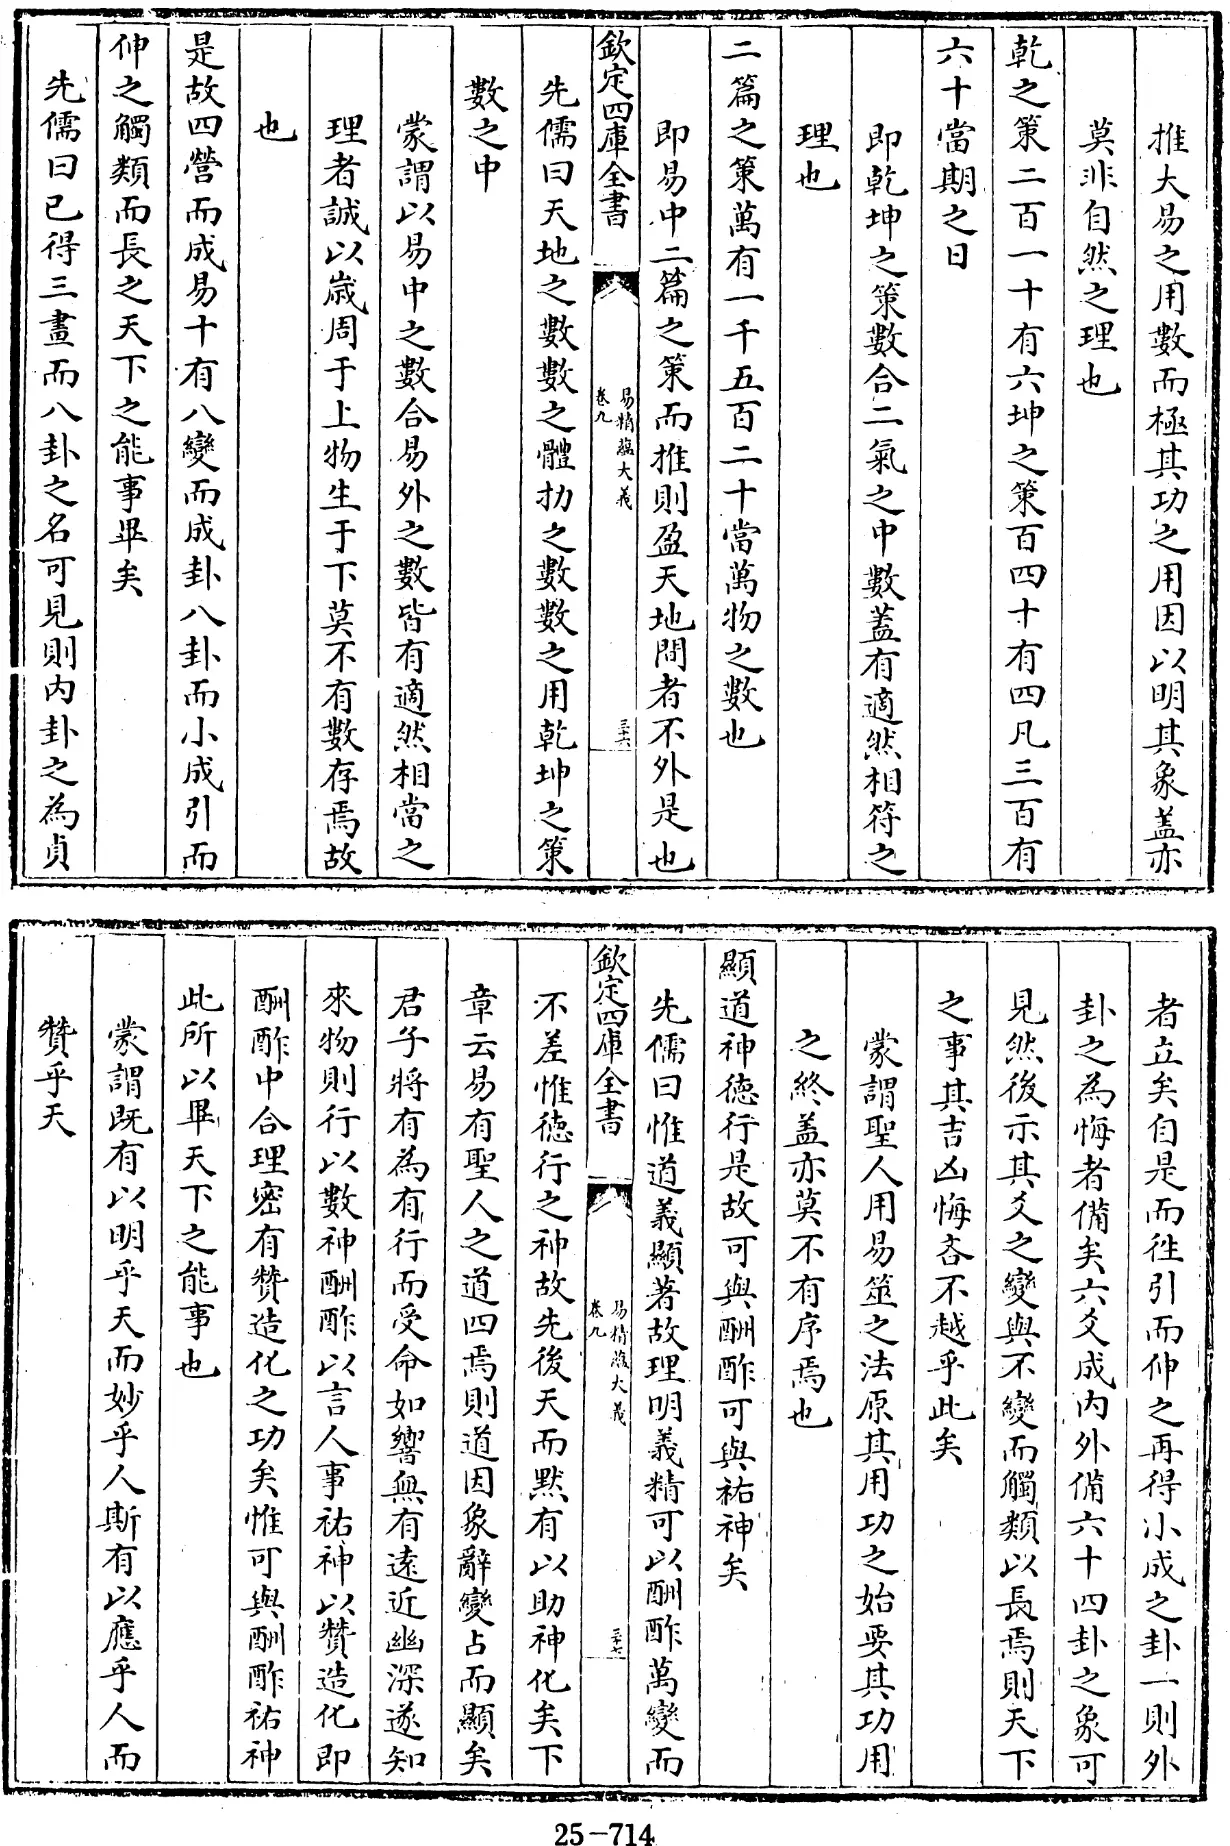 推大易之用數而極其功之用因以明其象盖亦
莫非自然之理也
乾之策二百一十有六坤之策百四十有四凡三百有
六十當期之日
即乾坤之策數合二氣之中數蓋有適然相符之
理也
二篇之策萬有一千五百二十當萬物之數也
即易中二篇之策而推則盈天地間者不外是也
欽定四庫全書
易精蘊大義
卷九
三十六
先儒曰天地之數數之體扐之數數之用乾坤之策
數之中
蒙謂以易中之數合易外之數皆有適然相當之
理者誠以歳周于上物生于下莫不有數存焉故
也
是故四營而成易十有八變而成卦八卦而小成引而
伸之觸類而長之天下之能事畢矣
先儒曰已得三畫而八卦之名可見則内卦之為貞
者立矣自是而徃引而伸之再得小成之卦一則外
卦之為悔者備矣六爻成内外備六十四卦之象可
見然後示其爻之變與不變而觸類以長焉則天下
之事其吉凶悔吝不越乎此矣
蒙謂聖人用易筮之法原其用功之始要其功用
之終盖亦莫不有序焉也
顯道神徳行是故可與酬酢可與祐神矣
先儒曰惟道義顯著故理明義精可以酬酢萬變而
欽定四庫全書
易精蘊大義
卷九
三十七
不差惟徳行之神故先後天而黙有以助神化矣下
章云易有聖人之道四焉則道因象辭變占而顯矣
君子將有為有行而受命如響無有逺近幽深遂知
來物則行以數神酬酢以言人事祐神以贊造化即
酬酢中合理宻有贊造化之功矣惟可與酬酢祐神
此所以畢天下之能事也
蒙謂既有以明乎天而妙乎人斯有以應乎人而
贊乎天
25-714